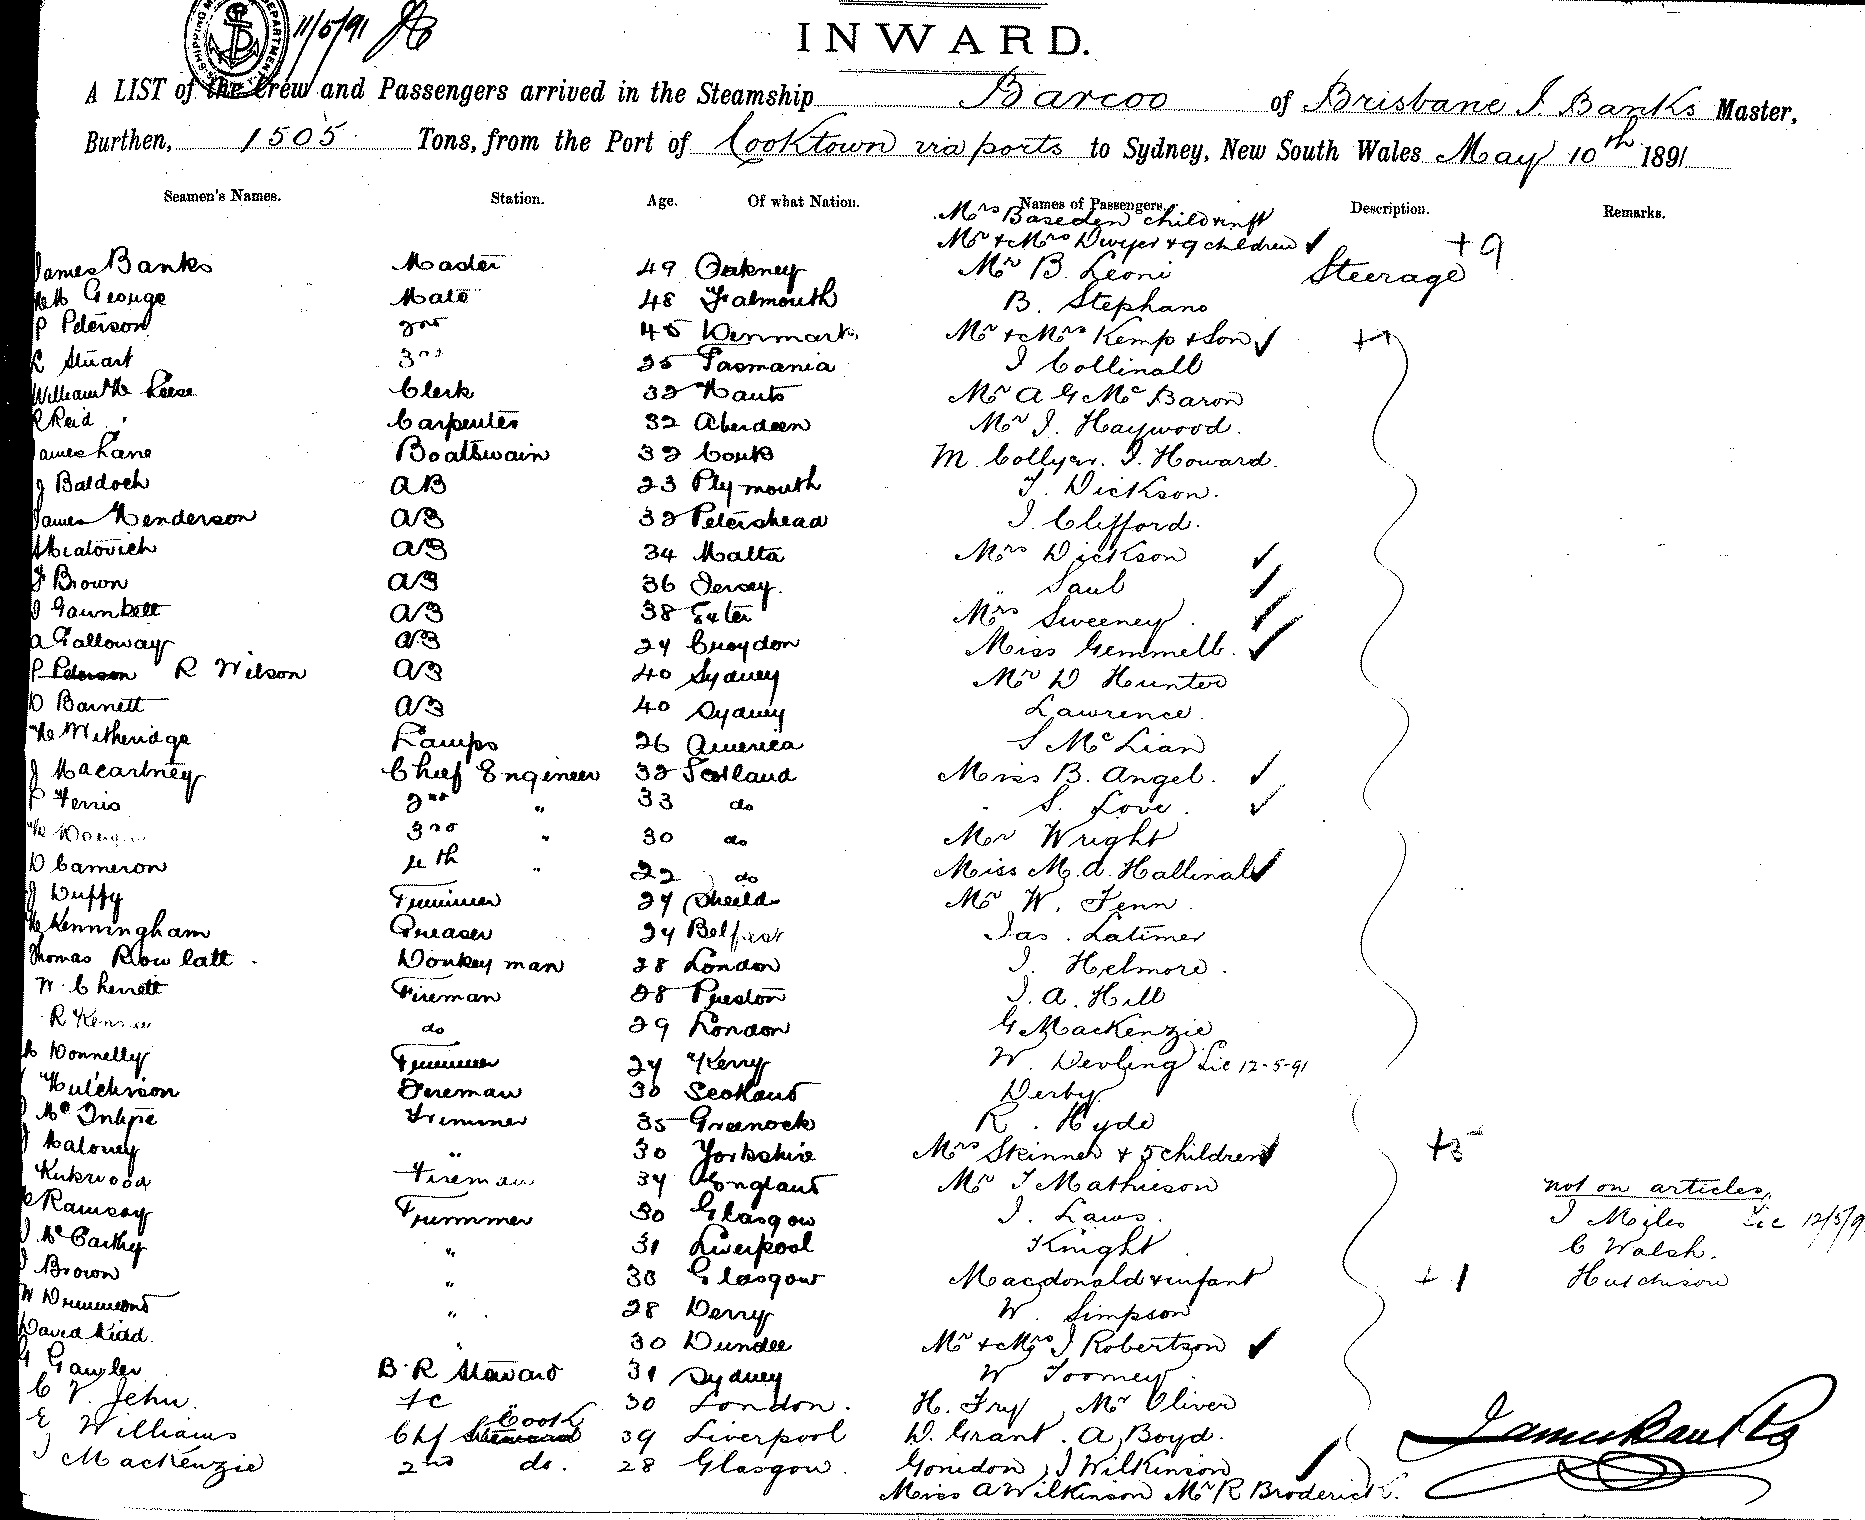 11/5/91
INWARD.
A LIST of the Crew and Passengers arrived in the Steamship Barcoo of Brisbane J. Banks Master,
Burthen, 1505 Tons, from the Port of Cooktown via ports to Sydney, New South Wales May 10th 1891
Seamen's Names. Station. Age. Of what Nation. Names of Passengers. Description. Remarks.
Mrs Baseden child inft
Mr & Mrs Dwyer & 9 children ✓ +9
James Banks Master 49 Orkney Mr B. Leoni Steerage
George Mate 48 Falmouth B. Stephans
P Peterson 2nd 45 Denmark Mr & Mrs Kemp & Son ✓ +1
Stuart 3rd 25 Tasmania J Collinall
William Leese Clerk 32 Hants Mr A G Mc Baron
R Reid Carpenter 32 Aberdeen Mr J. Haywood.
James Lane Boatswain 32 Cork M. Collyer. J. Howard.
J Baldoch AB 23 Plymouth T. Dickson.
James Henderson AB 32 Petershead J. Clifford.
Miatovich AB 34 Malta Mrs Dickson ✓
J Brown AB 36 Jersey. " Saul ✓
J Gaunkett AB 38 Exter Mrs Sweeney ✓
A Galloway AB 24 Croydon Miss Gemmell. ✓
P Peterson R Wilson AB 40 Sydney Mr D Hunter
D Barnett AB 40 Sydney Lawrence.
Witheridge Lamps 26 America S McLian
J Macartney Chief Engineer 32 Scotland Miss B. Angel. ✓
P Ferris 2nd " 33 do " S. Love. ✓
3rd " 30 do Mr Wright
D Cameron 4th " 22 do Miss M. A. Hallinal ✓
J Duffy Trimmer 24 Sheild Mr W. Fenn
Kenningham Greaser 24 Belfast Jas. Latimer
Thomas Rowlatt Donkeyman 28 London J. Helmore.
W. Cherrett Fireman 28 Preston J. A. Hill
R do 29 London G Mackenzie
Donnelly Trimmer 24 Kerry W. Devling Lic 12-5-91
Hutchison Fireman 30 Scotland Derby
Mc Trimmer 35 Greenock R. Hyde
J Maloney " 30 Yorkshire Mrs Skinner & 5 children ✓ +5
Kirkwood Fireman 34 England Mr J Mathieson not on articles,
Ramsay Trimmer 30 Glasgow J. Laws. J Miles Lic 12/5/9
J McCarthy " 31 Liverpool Knight C Walsh.
J Brown " 30 Glasgow Macdonald & infant +1 Hutchison
W Drummond " 28 Derry W. Simpson
David Kidd. " 30 Dundee Mr & Mrs J Robertson ✓
G Gawler B.R Steward 31 Sydney W Toomey.
C V. Jehu. 30 London. H. Fry, Mr Oliver
E Williams Chf Cook 39 Liverpool D. Grant. A. Boyd.
J Mackenzie 2nd do. 28 Glasgow. Gonidon, J Wilkinson ✓
Miss A Wilkinson Mr R Broderick.
James Banks